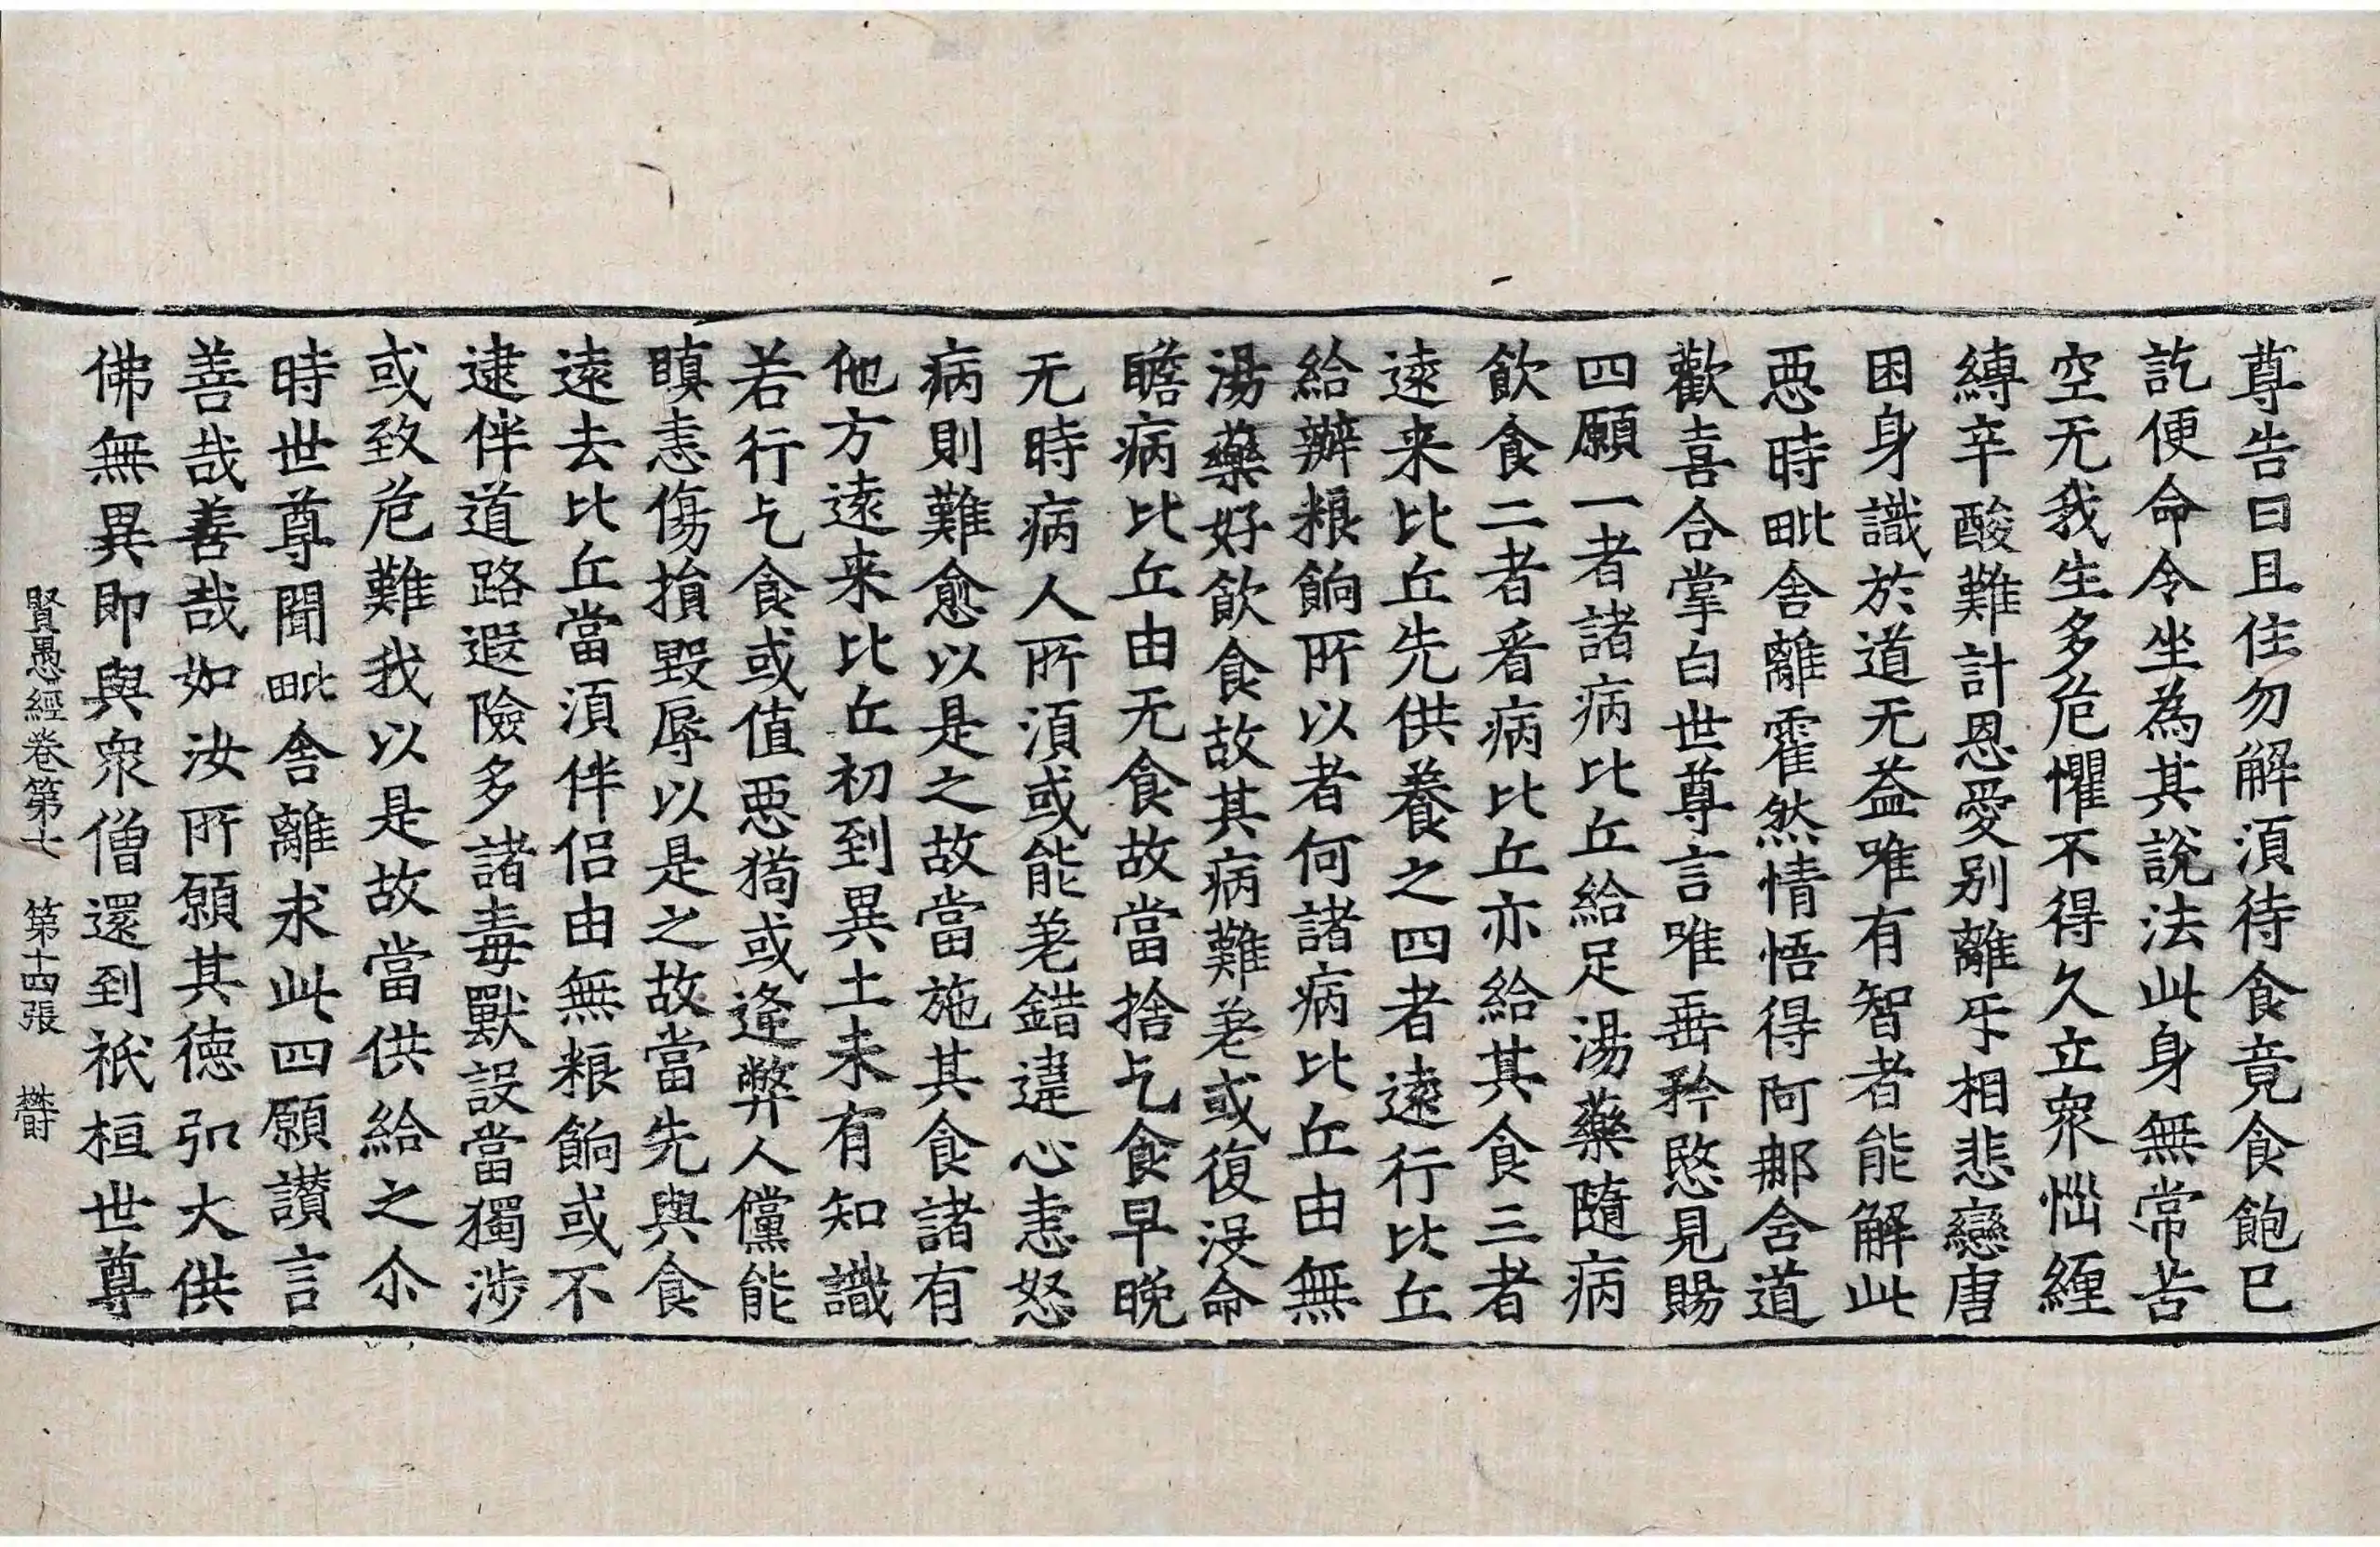 尊告曰且住勿解湏待食竟食飽已
訖便命令坐為其說法此身無常苦
空无我生多危懼不得久立衆惱纏
縛辛酸難計恩愛别離㸦相悲戀唐
困身識於道无益唯有智者能解此
惡時毗舍離霍然情悟得阿那含道
歡喜合掌白世尊言唯垂矜愍見賜
四願一者諸病比丘給足湯藥隨病
飲食二者看病比丘亦給其食三者
遠来比丘先供養之四者遠行比丘
給辦粮餉所以者何諸病比丘由無
湯藥好飲食故其病難差或復没命
瞻病比丘由无食故當捨乞食早晚
无時病人所湏或能差錯違心恚怒
病則難愈以是之故當施其食諸有
他方遠来比丘初到異土未有知識
若行乞食或值惡狗或逢弊人儻能
瞋恚傷損毀辱以是之故當先與食
遠去比丘當湏伴侣由無粮餉或不
逮伴道路遐險多諸毒獸設當獨涉
或致危難我以是故當供給之尒
時世尊聞毗舍離求此四願讃言
善哉善哉如汝所願其徳弘大供
佛無異即與衆僧還到祇桓世尊
賢愚經卷第七　第十四張　欝